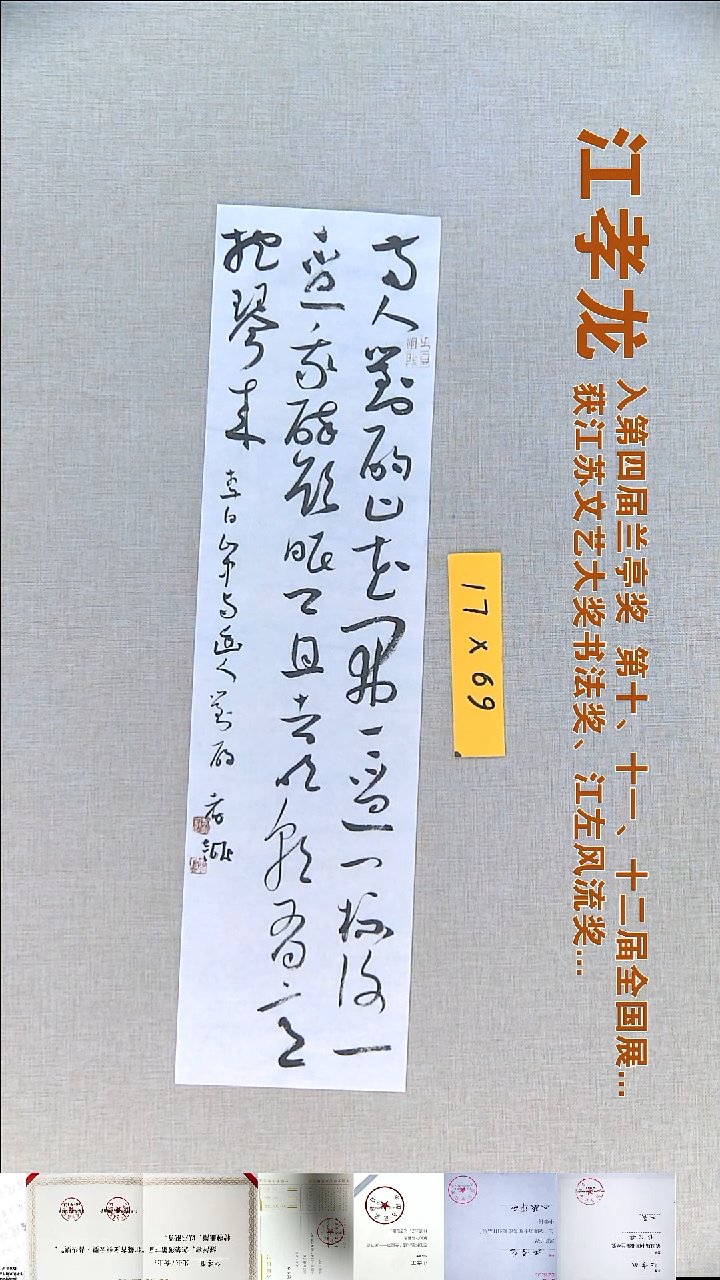 江孝龙
入第四届兰亭奖 第十、十一、十二届全国展...
获江苏文艺大奖书法奖、江左风流奖...
17x69
两人對酌山花開一盃一杯復一
盃我醉欲眠卿且去明朝有意
抱琴来 李白山中与幽人對酌 孝龍